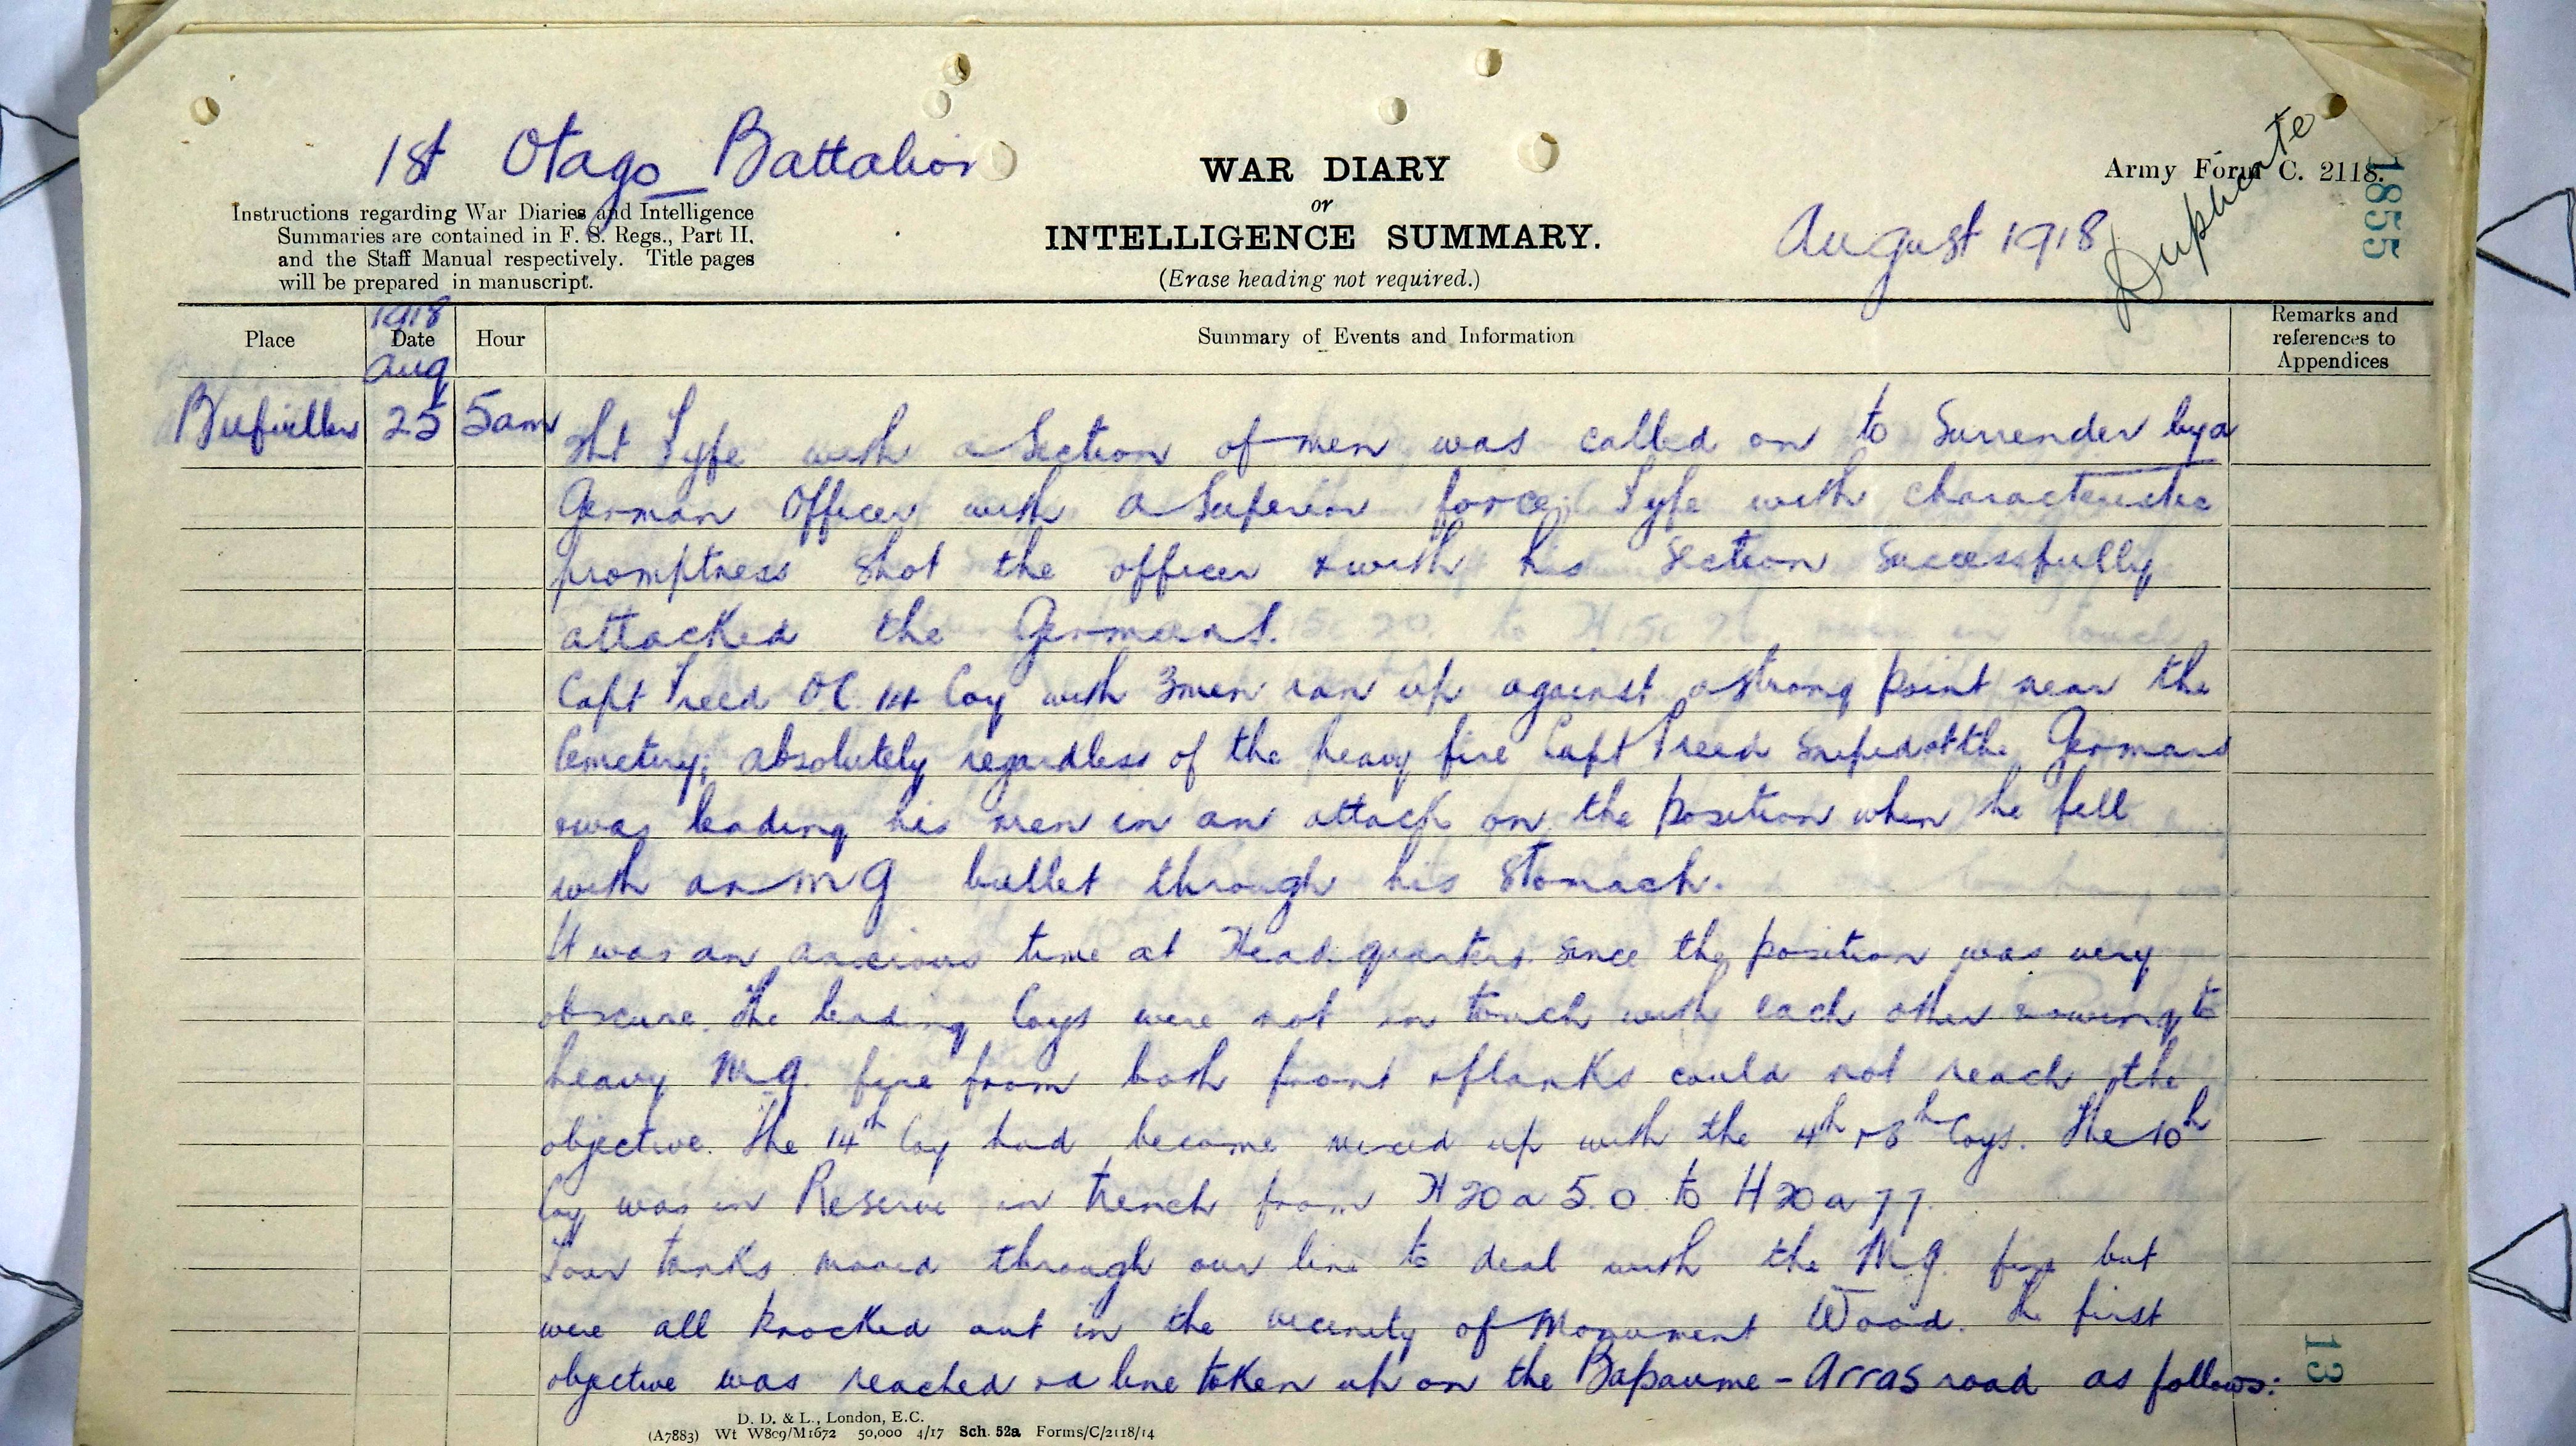 1st Otago Battalion
WAR DIARY
or
INTELLIGENCE SUMMARY.
(Erase heading not required.)
Army Form C. 2118.
Duplicate
1855
August 1918
Instructions regarding War Diaries and Intelligence
Summaries are contained in F. S. Regs., Part II.
and the Staff Manual respectively. Title pages
will be prepared in manuscript.
Place
1918
Date
Aug
Hour
Summary of Events and Information
Remarks and
references to
Appendices
Biefvillers 25 5am
Sgt Fyfe with a Section of men was called on to Surrender by a
German Officer with a Superior force; Fyfe with characteristic
promptness shot the officer & with his section successfully
attacked the Germans.
Capt Freed OC 14 Coy with 3 men ran up against a strong point near the
Cemetery; absolutely regardless of the heavy fire Capt Freed sniped at the Germans
& was leading his men in an attack on the position when he fell
with an M G bullet through his stomach.
It was an anxious time at Headquarters since the position was very
obscure. The leading Coys were not in touch with each other & owing to
heavy M.G. fire from both front & flanks could not reach the
objective. The 14th Coy had become mixed up with the 4th & 8th Coys. The 10th
Coy was in Reserve in trench from H 20 a 5.0. to H 20 a 77.
Four tanks moved through our line to deal with the M.G. fire but
were all knocked out in the vicinity of Monument Wood. The first
objective was reached & a line taken up on the Bapaume - Arras road as follows:
13
D. D. & L., London, E.C.
(A7883) Wt W809/M1672 50,000 4/17 Sch. 52a Forms/C/2118/14